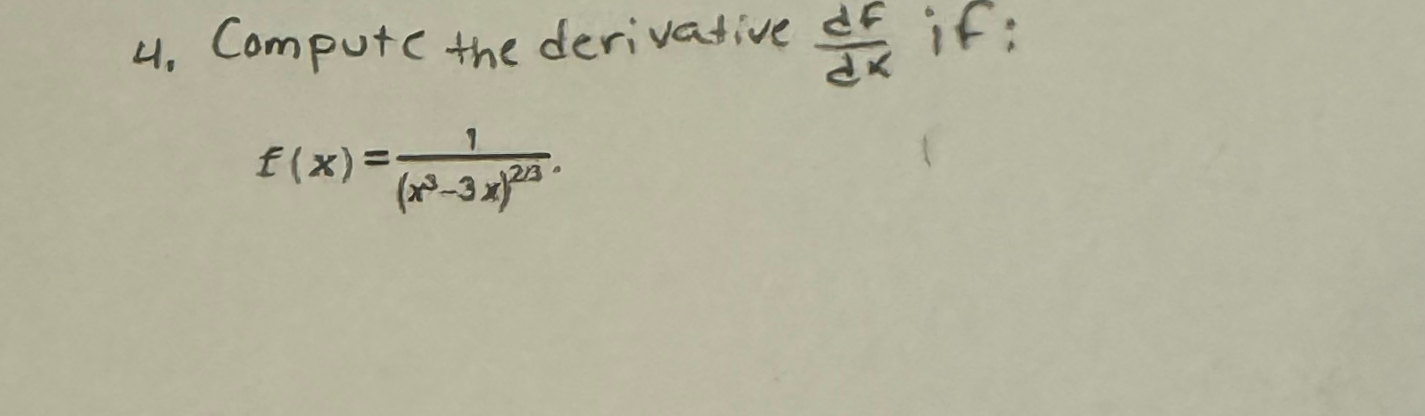 4. Compute the derivative dF/dx if:
f(x) = 1/(x³-3x)^2/3.